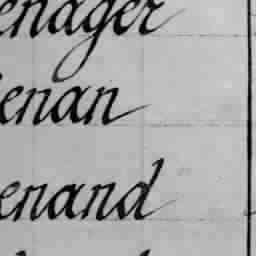 enager
enan
enand